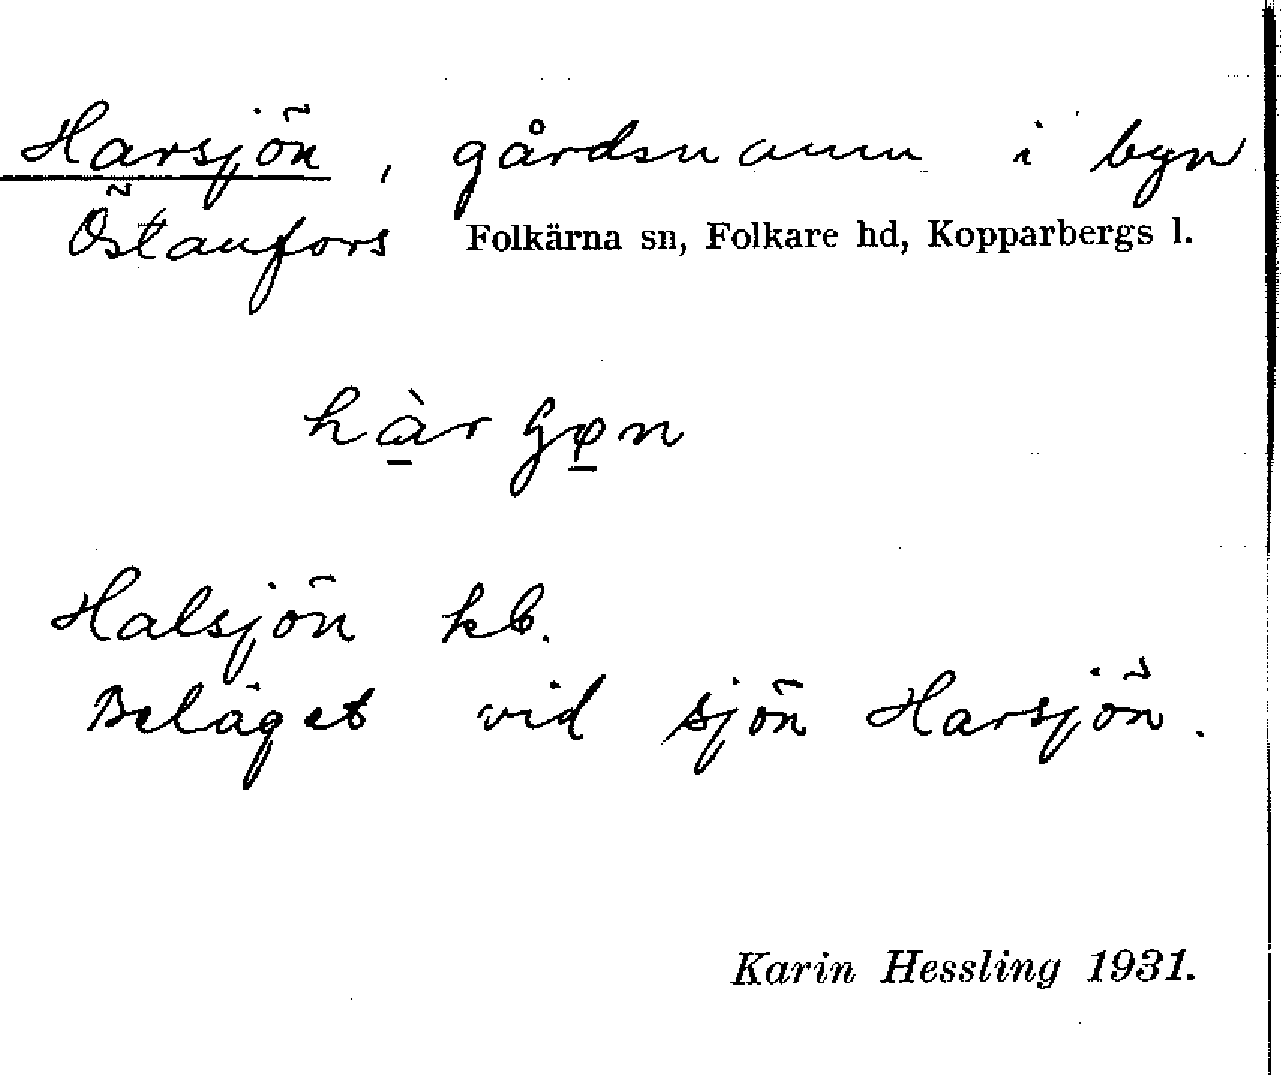 Harsjön, gårdsnamn i byn
Östanfors Folkärna sn, Folkare hd, Kopparbergs l.
Halsjön kb.
Beläget vid sjön Harsjön.
Karin Hessling 1931.